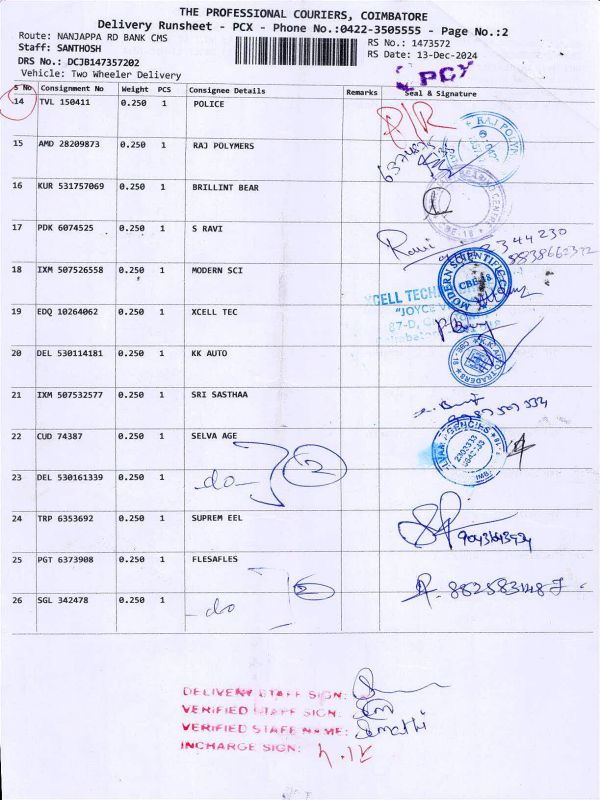 THE PROFESSIONAL COURIERS, COIMBATORE
Delivery Runsheet - PCX - Phone No.:0422-3505555 - Page No.:2
Route: NANJAPPA RD BANK CMS
RS No.: 1473572
Staff: SANTHOSH
RS Date: 13-Dec-2024
DRS No.: DCJB147357202
Vehicle: Two Wheeler Delivery
PCX
S No Consignment No Weight PCS Consignee Details Remarks Seal & Signature
14 TVL 150411 0.250 1 POLICE
15 AMD 28209873 0.250 1 RAJ POLYMERS
16 KUR 531757069 0.250 1 BRILLINT BEAR
17 PDK 6074525 0.250 1 S RAVI
18 IXM 507526558 0.250 1 MODERN SCI
19 EDQ 10264062 0.250 1 XCELL TEC
20 DEL 530114181 0.250 1 KK AUTO
21 IXM 507532577 0.250 1 SRI SASTHAA
22 CUD 74387 0.250 1 SELVA AGE
23 DEL 530161339 0.250 1 -do- 2
24 TRP 6353692 0.250 1 SUPREM EEL
25 PGT 6373908 0.250 1 FLESAFLES
26 SGL 342478 0.250 1 -do 2
RAJ POLYM
Ravi
MODERN SCIENTIFIC CO
CBE-18
XCELL TECH
"JOYCE
87-D,
K.K AUTO TRADERS
CBE - 18
AGENCIES
DELIVERY STAFF SIGN:
VERIFIED STAFF SIGN:
VERIFIED STAFF NAME: Sumathi
INCHARGE SIGN: